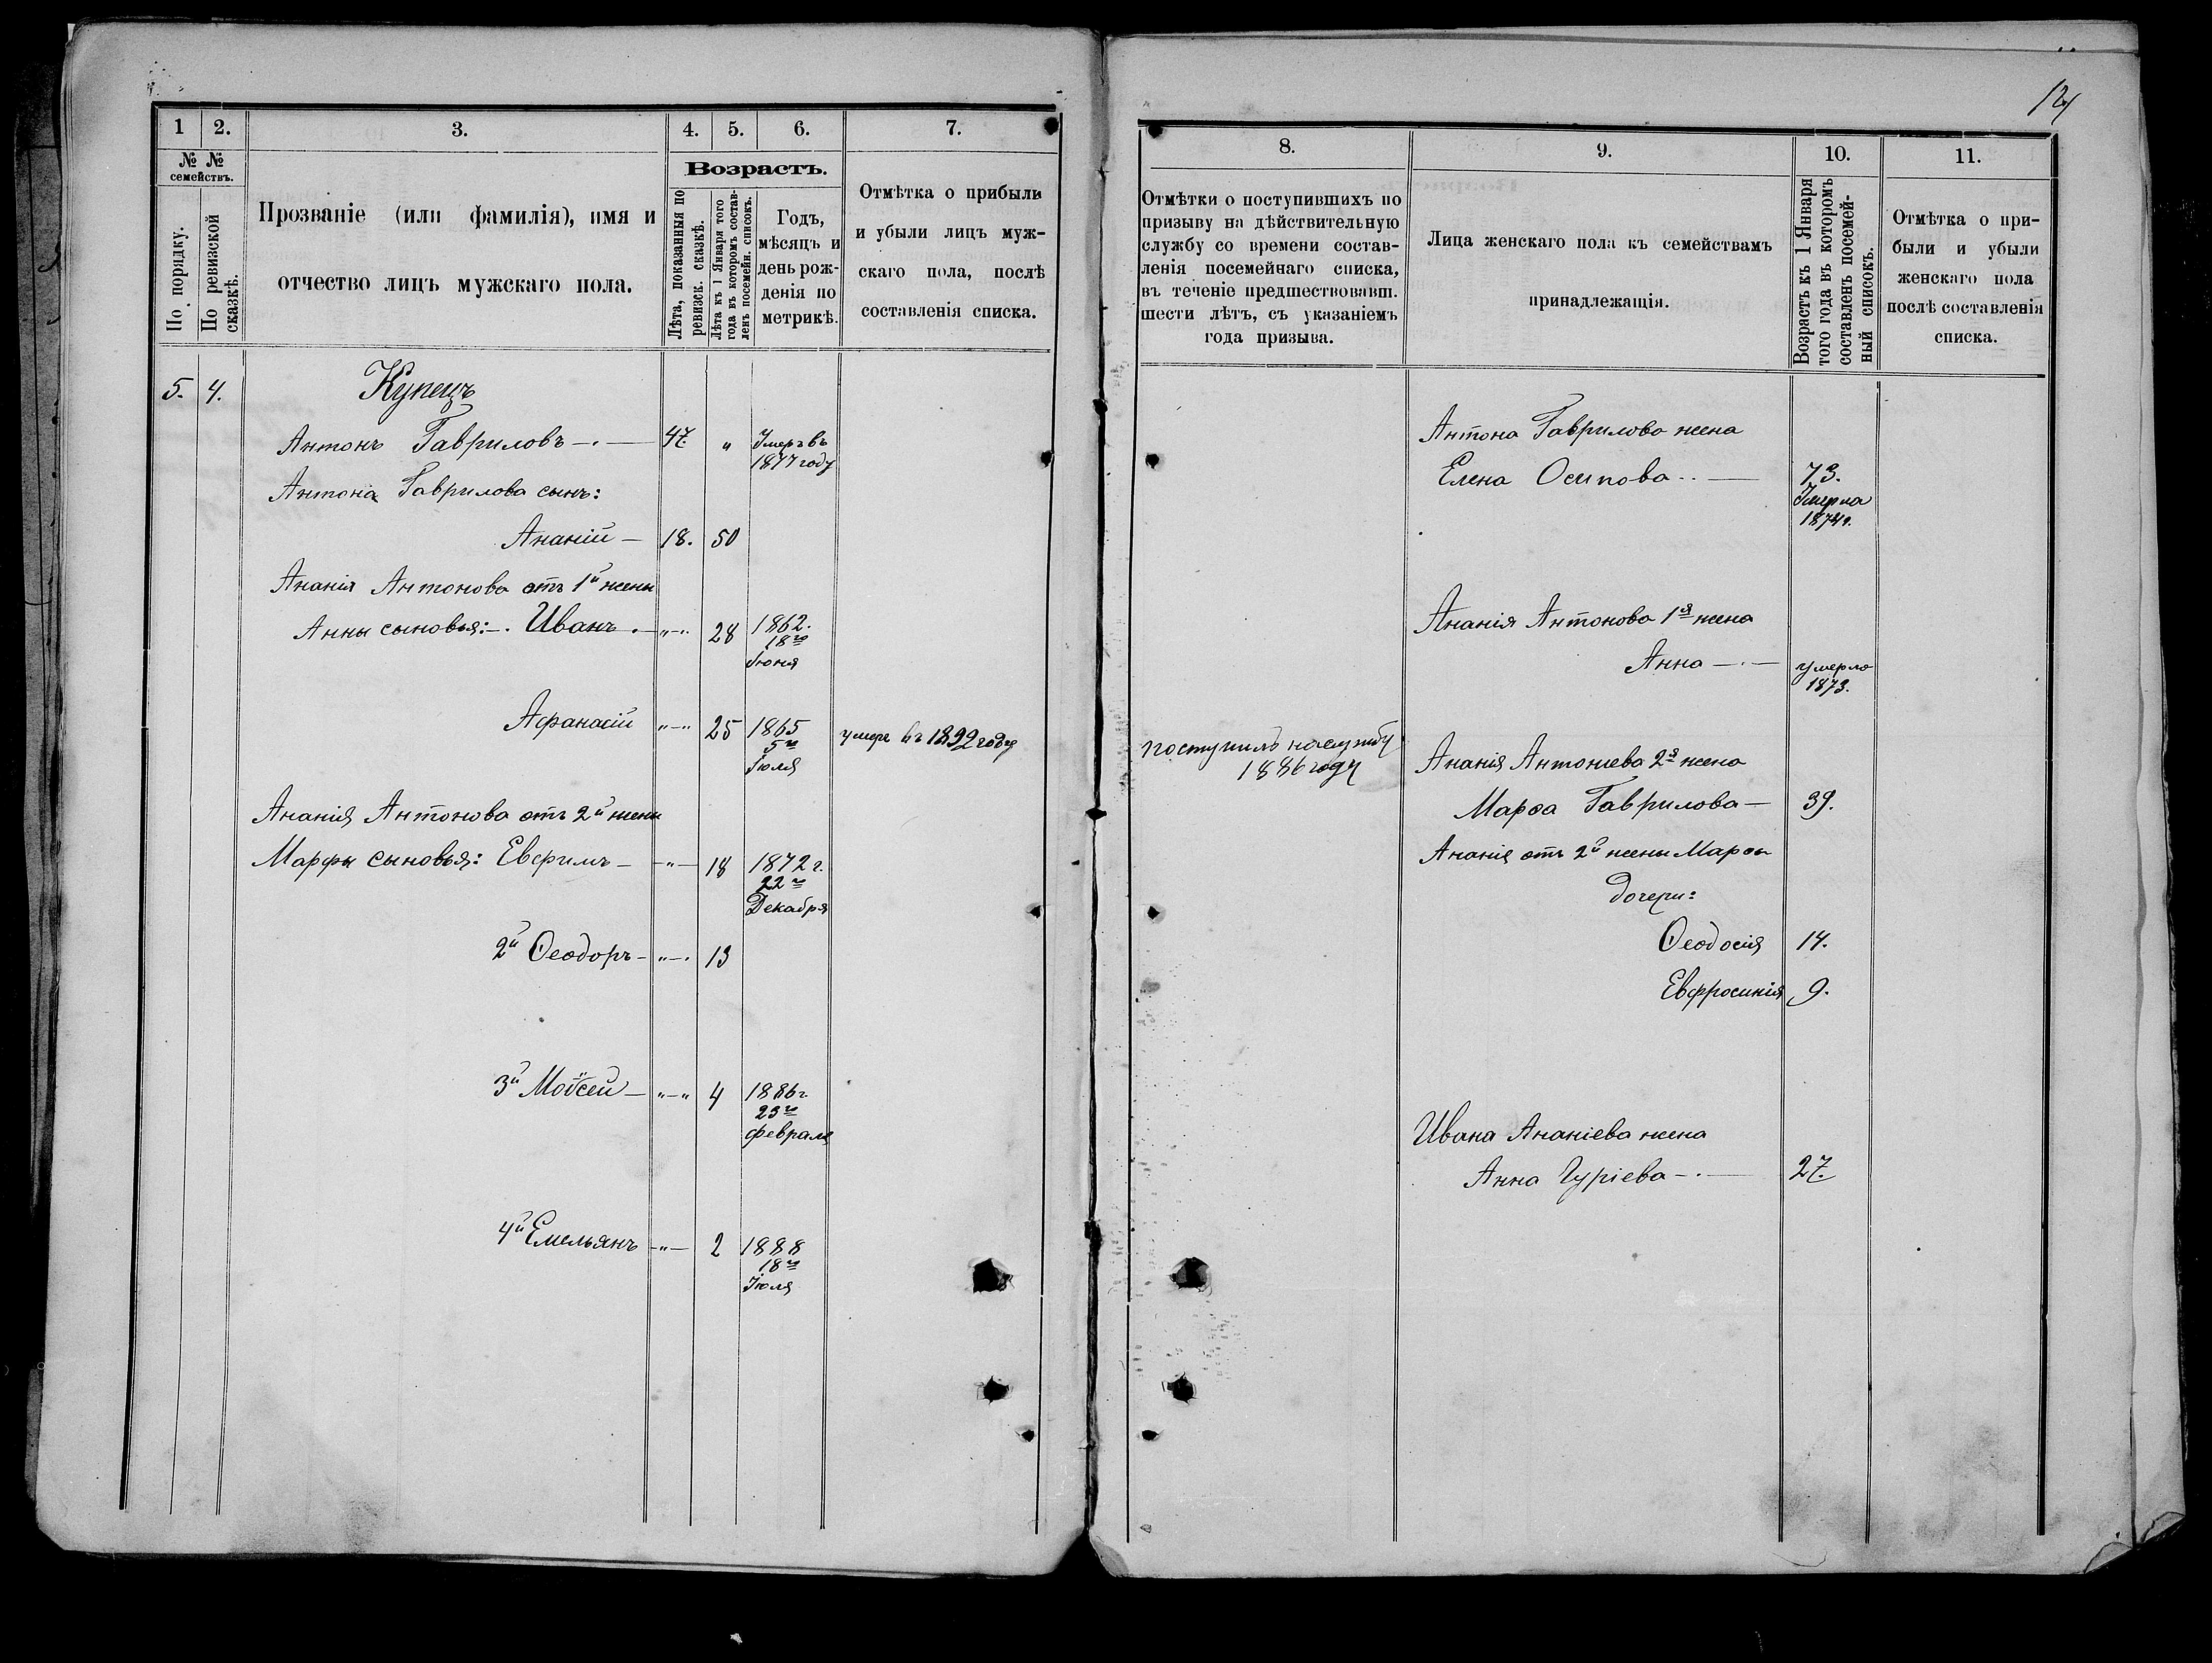 1
2.
3.
4.
5.
6.
7.
№ №
семействъ.
По порядку.
По ревизской
сказкѣ.
Прозваніе (или фамилія), имя и
отчество лицъ мужскаго пола.
Возрастъ.
Лѣта, показанныя по
ревизск. сказкѣ.
Лѣта къ 1 Января того
года въ которомъ состав-
ленъ посемейн. списокъ.
Годъ,
мѣсяцъ и
день рож-
денія по
метрикѣ.
Отмѣтка о прибыли
и убыли лицъ муж-
скаго пола, послѣ
составленія списка.
5. 4. Купецъ
Антонъ Гавриловъ —.— 47 „ Умеръ въ
1877 году
Антона Гаврилова сынъ:
Ананій — 18. 50
Ананія Антонова отъ 1й жены
Анны сыновья: —. Иванъ . —„—„ 28 1862.
18го
Іюня
Афанасій „—„ 25 1865 умеръ въ 1892 году
5го
Іюля
Ананія Антонова отъ 2й жены
Марфы сыновья: Евфимъ — —„— 18 1872 г.
22го
Декабря
2й Ѳеодоръ — „—. 13
3й Моѵсей — „—„ 4 1886 г.
23го
февраля
4й Емельянъ —„— 2 1888
18го
Іюля
12
8.
9.
10.
11.
Отмѣтки о поступившихъ по
призыву на дѣйствительную
службу со времени состав-
ленія посемейнаго списка,
въ теченіе предшествовавш.
шести лѣтъ, съ указаніемъ
года призыва.
Лица женскаго пола къ семействамъ
принадлежащія.
Возрастъ къ 1 Января
того года въ которомъ
составленъ посемей-
ный списокъ.
Отмѣтка о при-
были и убыли
женскаго пола
послѣ составленія
списка.
Антона Гаврилова жена
Елена Осипова . . — 73.
Умерла
1874 г.
Ананія Антонова 1я жена
Анна —.— умерла
1873.
поступилъ на службу
1886 году
Ананія Антониева 2я жена
Марѳа Гаврилова — 39.
Ананія отъ 2й жены Марѳы
дочери:
Ѳеодосія 14.
Евфросинія 9.
Ивана Ананіева жена
Анна Гуріева —.— 27.